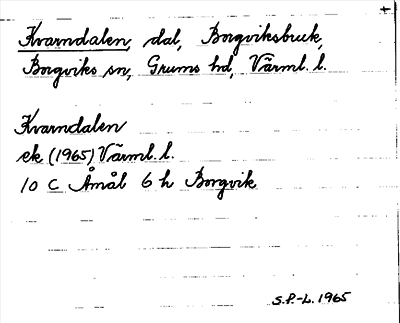 Kvarndalen, dal, Borgviksbruk,
Borgviks sn, Grums hd, Värml. l.
Kvarndalen
ek (1965) Värml. l.
10 C Åmål 6 h Borgvik
S.P.-L. 1965